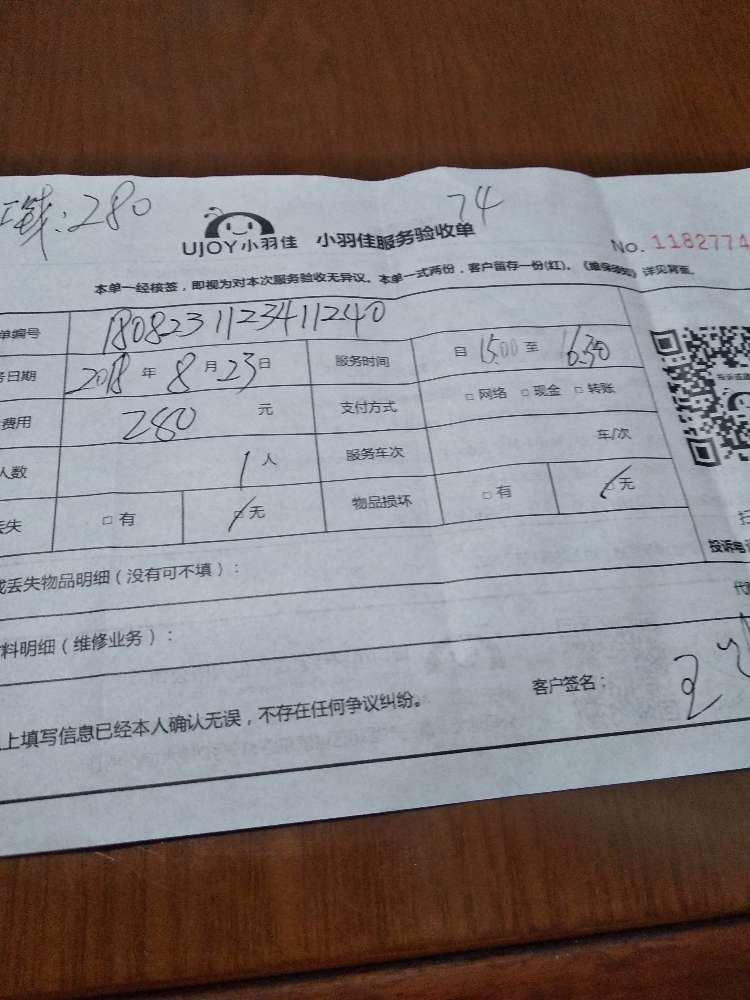 工钱:280
74
UJOY小羽佳 小羽佳服务验收单
No. 1182774
本单一经核签，即视为对本次服务验收无异议。本单一式两份，客户留存一份(红)。《维保须知》详见背面。
单编号 180823112341240
务日期 2018 年 8 月 23 日 服务时间 自 15:00 至 16:30
费用 280 元 支付方式 □ 网络 □ 现金 □ 转账
人数 1 人 服务车次 车/次
丢失 □ 有 □ 无 物品损坏 □ 有 □ 无
投诉电
或丢失物品明细（没有可不填）：
料明细（维修业务）：
上填写信息已经本人确认无误，不存在任何争议纠纷。 客户签名：